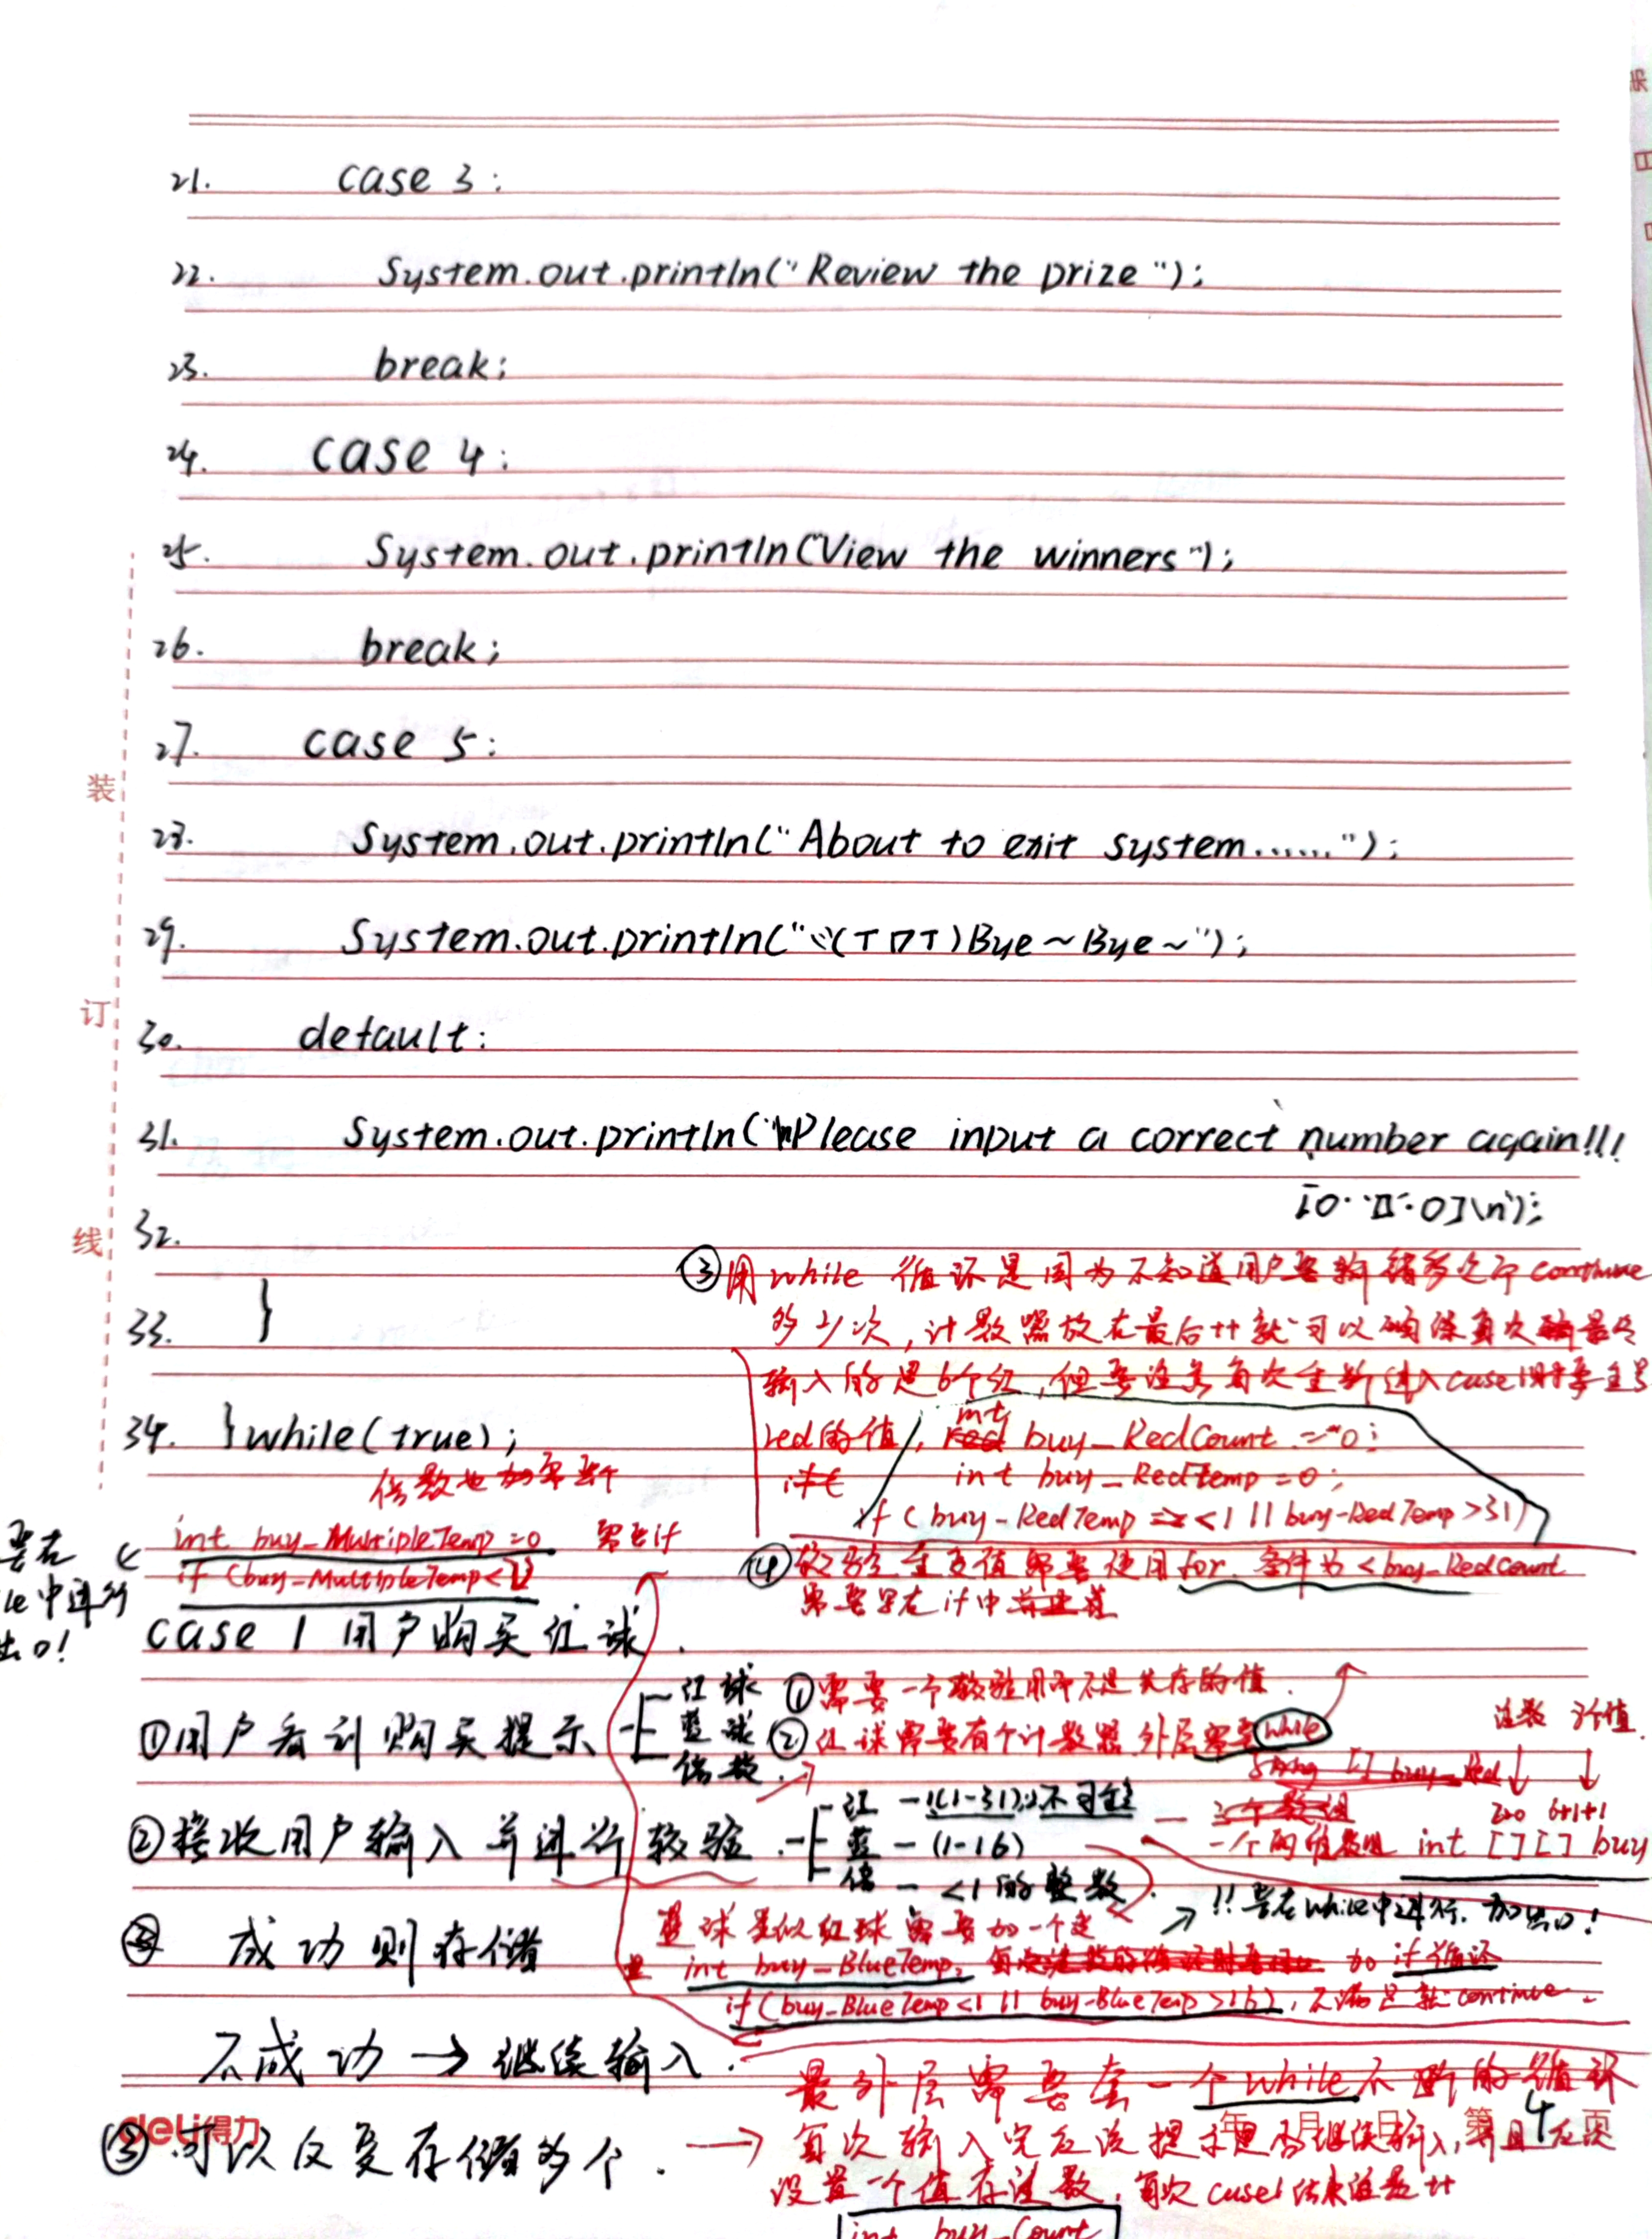 21. case 3:
22. System.out.println("Review the prize");
23. break;
24. case 4:
25. System.out.println("View the winners");
26. break;
27. case 5:
28. System.out.println("About to exit system......");
29. System.out.println("ヾ(TДT)Bye~Bye~");
30. default:
31. System.out.println("\nPlease input a correct number again!!!
[O··Д·O]\n");
32.
33. }
34. }while(true);
装
订
线
③用while循环是因为不知道用户要输错多少次continue
多少次,计数器放在最后++就可以确保每次最终
输入的是6个红,但要注意每次重新进入case1时要重置
red的值, int buy_RedCount = 0;
int buy_RedTemp = 0;
if (buy_RedTemp <1 || buy_RedTemp >31)
④校验重复值需要使用for 条件为<buy_RedCount
需要写在if中
倍数也加
int buy_MultipleTemp = 0 需要if
if (buy_MultipleTemp<1)
要在
le中进行
出口!
case 1 用户购买红球.
①用户看到购买提示
红球
蓝球
倍数
①需要一个校验用而不是失存的值.
②红球需要有个计数器 外层需要while
注数 3个值
String [] buy_Red
220 6+1+1
三个数组
int [][] buy
②接收用户输入并进行校验.
红 - 1(1-31) 不可重
蓝 - (1-16)
倍 - <1的整数.
!!要在while中进行. 加出口!
蓝球类似红球 需要加一个
int buy_BlueTemp, 加if循环
if(buy_BlueTemp<1 || buy_BlueTemp>16), 不满足就continue.
③ 成功则存储
不成功→继续输入.
最外层需要套一个while不断的循环
每次输入完应该提示是否继续输入,并且应该
设置一个值存注数, 每次case1结束注数++
int buy_Count
③可以反复存储多个.
deli得力
年 月 日 第 4 页